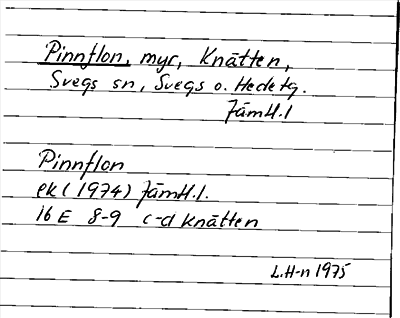 Pinnflon, myr, Knätten,
Svegs sn, Svegs o. Hede tg.
Jämtl. l
Pinnflon
ek (1974) Jämtl. l.
16 E 8-9 c-d Knätten
L.H-n 1975